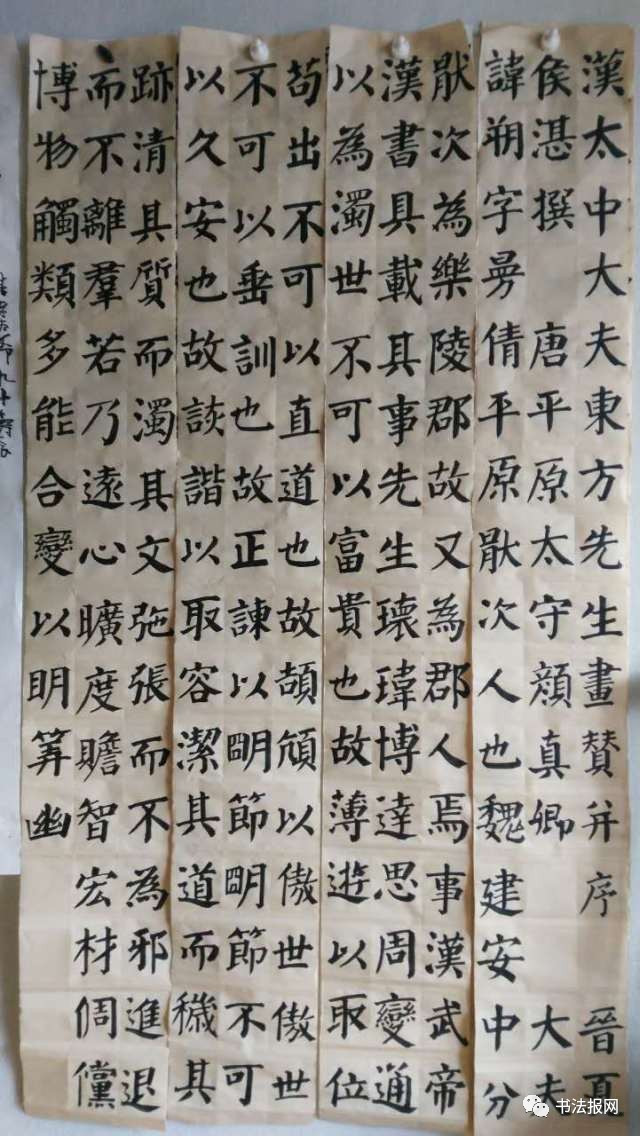 漢太中大夫東方先生畫賛并序 晉夏
侯湛撰 唐平原太守顔真卿 大夫
諱朔字曼倩平原猒次人也魏建安中分
猒次為樂陵郡故又為郡人焉事漢武帝
漢書具載其事先生瓌瑋博達思周變通
以為濁世不可以富貴也故薄遊以取位
苟出不可以直道也故頡頏以傲世傲世
不可以垂訓也故正諫以明節明節不可
以久安也故詼諧以取容潔其道而穢其
跡清其質而濁其文弛張而不為邪進退
而不離羣若乃遠心曠度贍智宏材倜儻
博物觸類多能合變以明筭幽
书法报网